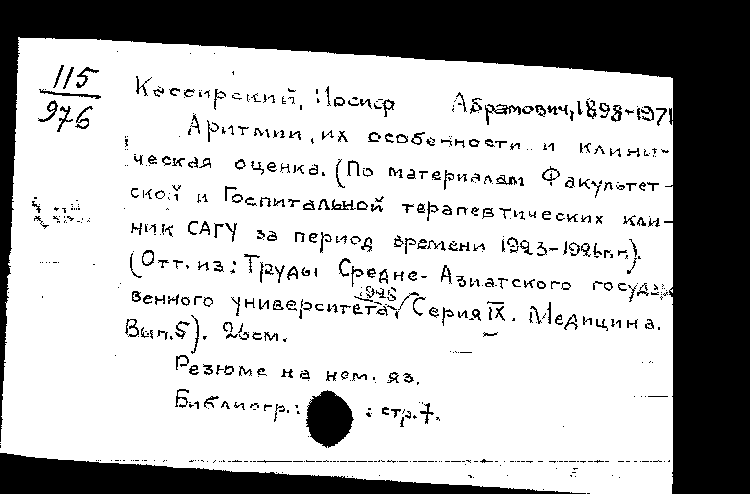 115
976
Кассирский, Иосиф Абрамович, 1898-1971
Аритмии, их особенности и клини-
ческая оценка. (По материалам Факультет-
ской и Госпитальной терапевтических кли-
ник САГУ за период времени 1923-1926 г.г.).
(Отт. из: Труды Средне-Азиатского государ
венного университета, 1928 Серия IX. Медицина.
Вып. 5). 26 см.
Резюме на нем. яз.
Библиогр.: : стр. 7.